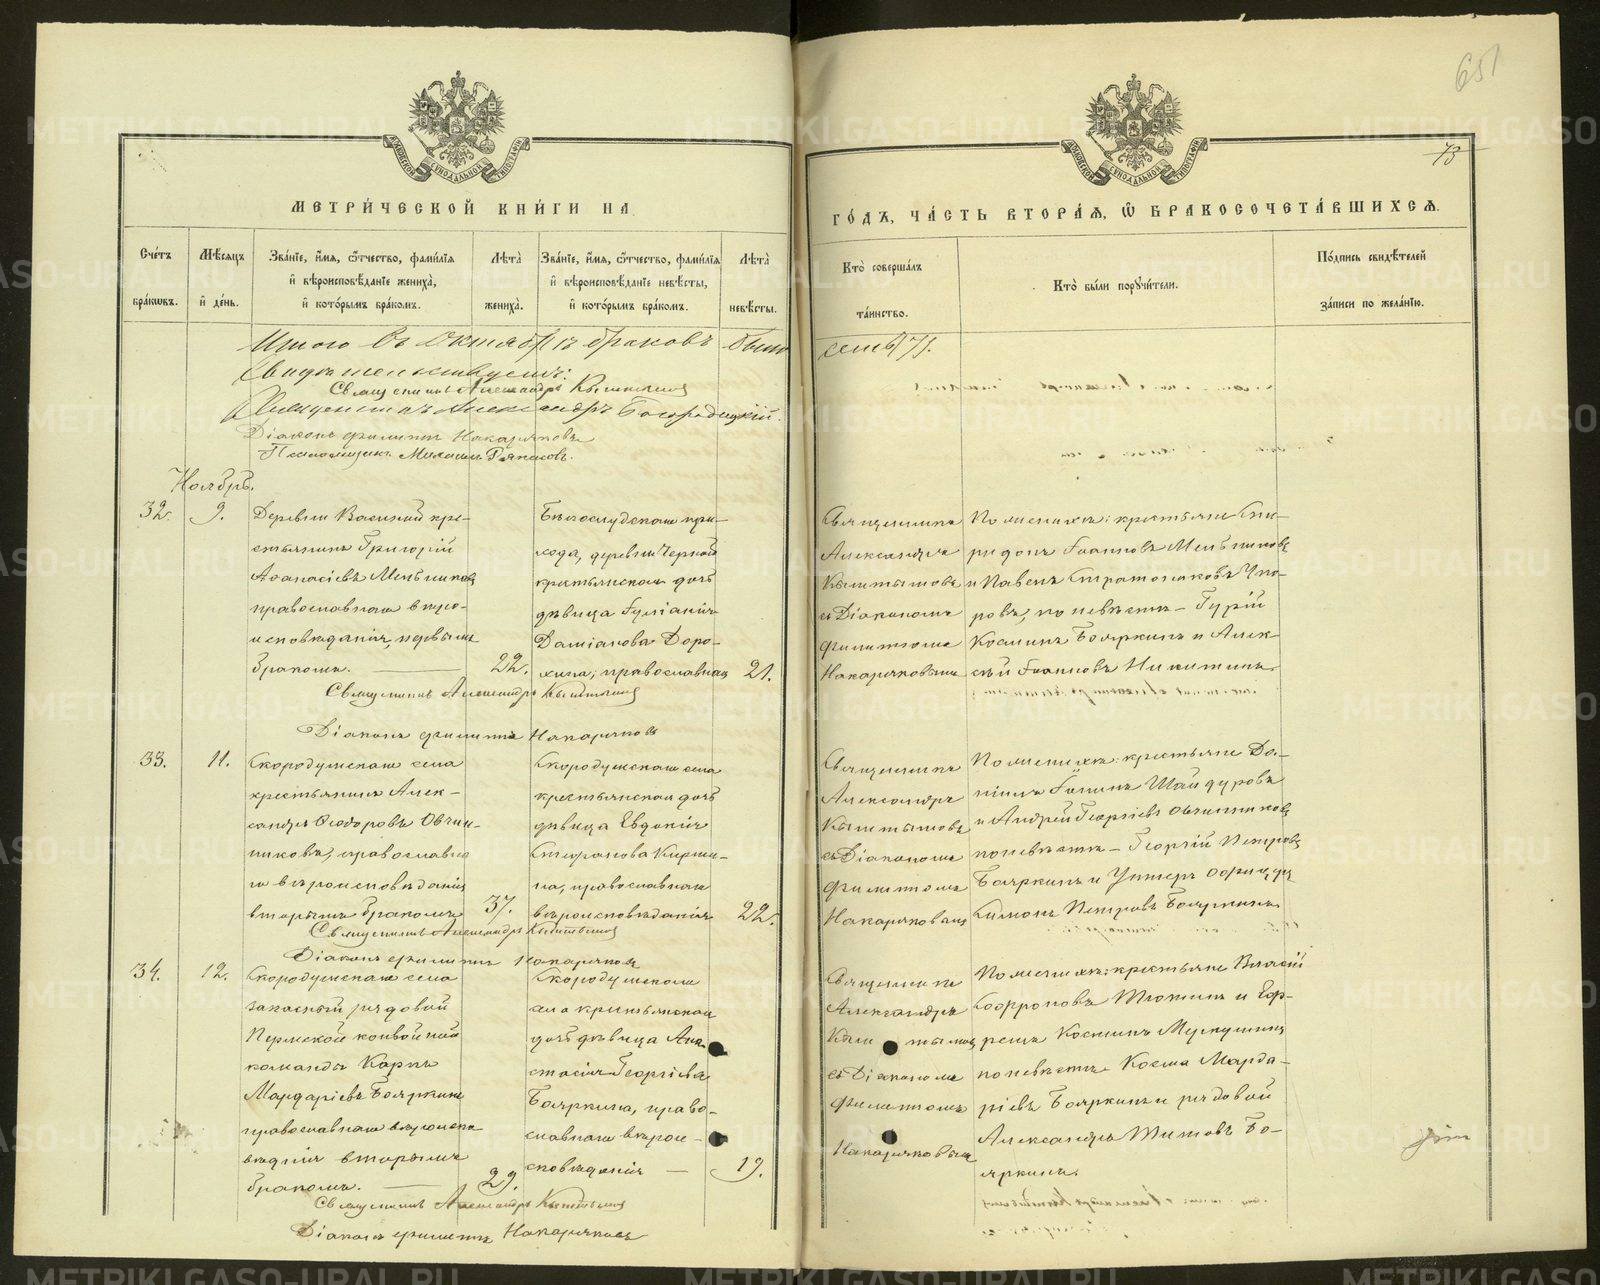 651
73
МЕТРИ́ЧЕСКОЙ КНИ́ГИ НА
ГО́ДЪ, ЧА́СТЬ ВТОРА́Я, Ѽ БРАКОСОЧЕТА́ВШИХСЯ.
Сче́тъ бра́кѡвъ.
Мѣ́сяцъ и҆ де́нь.
Зва́нїе, и҆́мя, ѻ҆́тчество, фами́лїя и҆ вѣроисповѣ́данїе жениха̀, и҆ кото́рымъ бра́комъ.
Лѣ́та жениха̀.
Зва́нїе, и҆́мя, ѻ҆́тчество, фами́лїя и҆ вѣроисповѣ́данїе невѣ́сты, и҆ кото́рымъ бра́комъ.
Лѣ́та невѣ́сты.
Кто̀ соверша́лъ та́инство.
Кто̀ бы́ли пору́чи́тели.
По́дпись свидѣ́телей за́писи по жела́нїю.
Итого въ Октябрѣ браковъ было
семь (7).
Священникъ Александръ Кыштымовъ
Александръ Богородицкій.
Діаконъ Филиппъ Накаряковъ
Псаломщикъ Михаилъ
Ноябрь.
32.
9.
Деревни крe-
стьянинъ Григорій
Аѳанасіевъ Мельниковъ
православнаго вѣро-
исповѣданія, первымъ
бракомъ.
22.
Бѣлослудскаго при-
хода, деревни Черной
крестьянская дочь
дѣвица Іуліанія
Даміанова Доро-
хина, православнаго
21.
Священникъ
Александръ
Кыштымовъ
съ Діакономъ
Филиппомъ
Накаряковымъ
По женихѣ: крестьяне Спи-
ридонъ Іоанновъ Мельниковъ
и Павелъ Стратониковъ
по невѣстѣ – Гурій
Косминъ Бояркинъ и Алек-
сѣй Іоанновъ Никитинъ.
Священникъ Александръ Кыштымовъ
Діаконъ Филиппъ Накаряковъ
33.
11.
Скородумскаго села
крестьянинъ Алек-
сандръ Ѳеодоровъ Овчин-
никовъ, православна-
го вѣроисповѣданія
вторымъ бракомъ
37.
Скородумскаго села
крестьянская дочь
дѣвица Евдокія
Стефанова
православнаго
вѣроисповѣданія
22.
Священникъ
Александръ
Кыштымовъ
съ Діакономъ
Филиппомъ
Накаряковымъ
По женихѣ: крестьяне Да-
ніилъ Іоанновъ Шайдуровъ
и Андрей Георгіевъ Овчинниковъ
по невѣстѣ – Георгій Петровъ
Бояркинъ и Унтеръ офицеръ
Симонъ Петровъ Бояркинъ.
Священникъ Александръ Кыштымовъ
Діаконъ Филиппъ Накаряковъ
34.
12.
Скородумскаго села
запасный рядовой
Пермской конвойной
команды Карпъ
Мардаріевъ Бояркинъ
православнаго вѣроиспо-
вѣданія вторымъ
бракомъ.
29.
Скородумскаго
села крестьянская
дочь дѣвица Ана-
стасія Георгіева
Бояркина, право-
славнаго вѣрои-
сповѣданія
19.
Священникъ
Александръ
Кыштымовъ
съ Діакономъ
Филиппомъ
Накаряковымъ
По женихѣ: крестьяне Власій
Софроновъ Тюкинъ и Еф-
ремъ Косминъ Мункушинъ
по невѣстѣ Косма Марда-
ріевъ Бояркинъ и рядовой
Александръ Титовъ Бо-
яркинъ.
Священникъ Александръ Кыштымовъ
Діаконъ Филиппъ Накаряковъ
METRIKI.GASO-URAL.RU